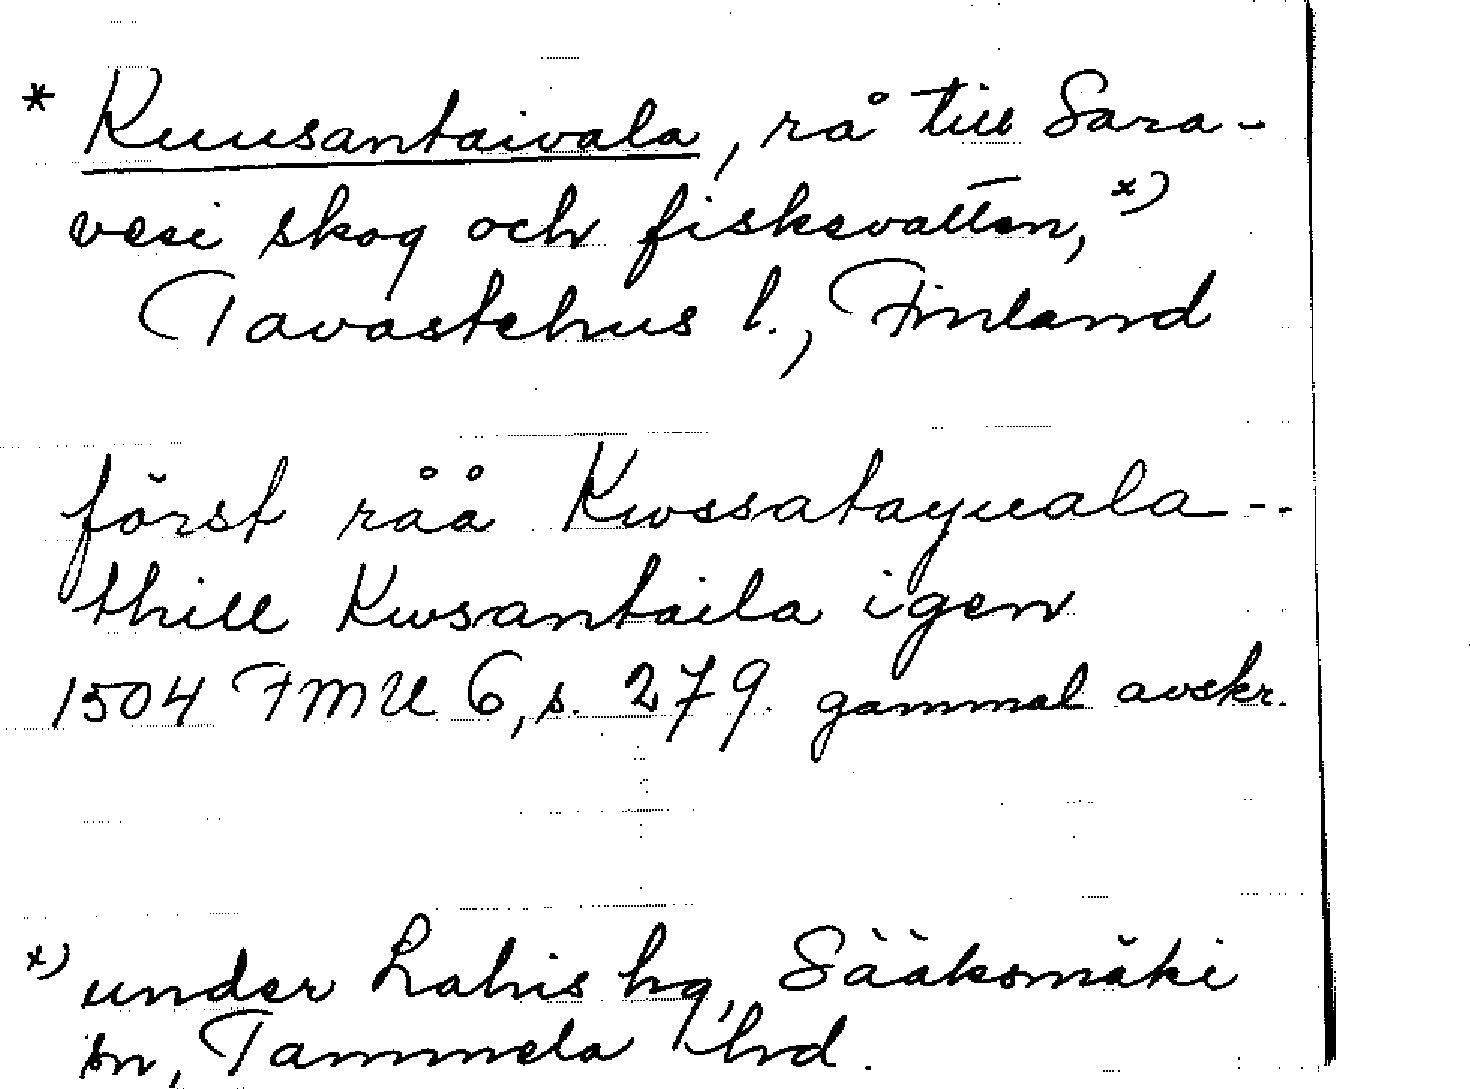 * Kuusantaivala, rå till Sara-
vesi skog och fiskevatten, x)
Tavastehus l., Finland
först råå Kwssatayuala --
thill Kwsantaila igen
1504 FMU 6, s. 279 gammal avskr.
x) under Lahis hg, Sääksmäki
sn, Tammela hd.